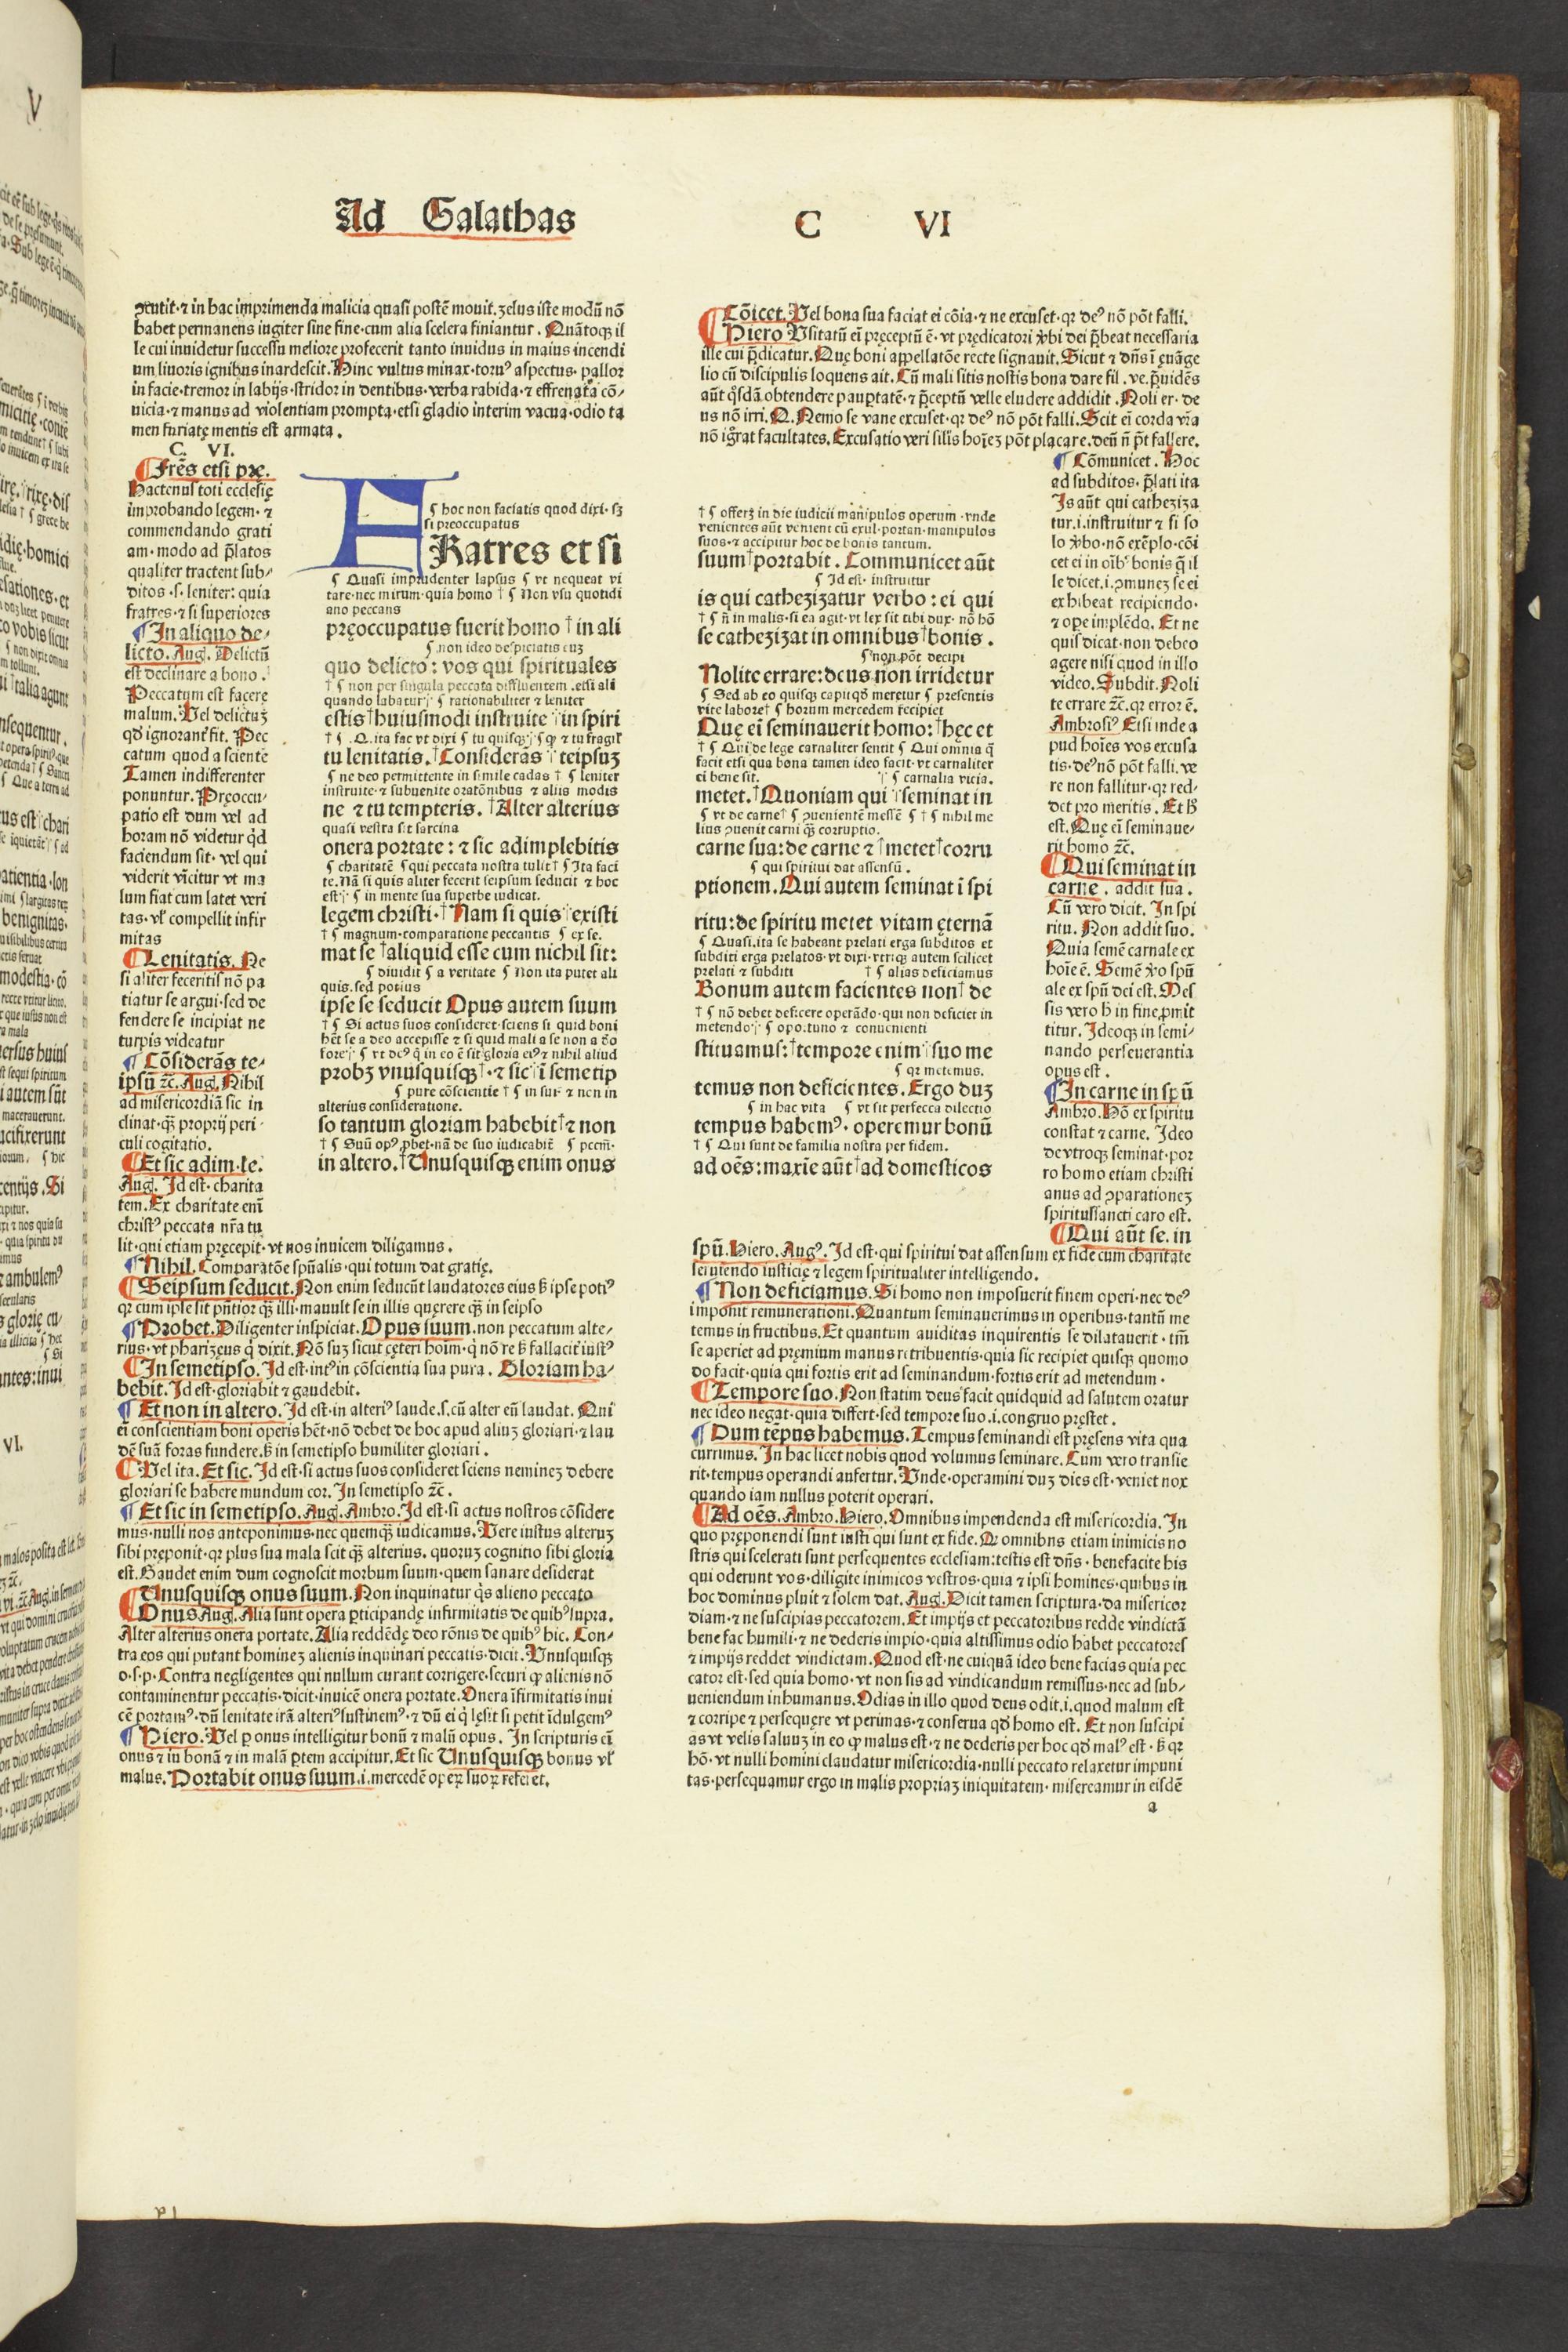 Ad Galathas C VI
ꝯcutit·⁊ in hac imprimenda malicia quasi postẽ mouit.zelus iste modũ nõ
habet permanens iugiter sine fine·cum alia scelera finiantur. Quãtoqꝫ il
le cui inuidetur successu meliore profecerit tanto inuidus in maius incendi
um liuoris ignibus inardescit. Hinc vultus minax·torus aspectus·pallor
in facie·tremor in labijs·stridor in dentibus·verba rabida·⁊ effrenata cõ/
uicia·⁊ manus ad violentiam prompta·etsi gladio interim vacua·odio ta
men furiatę mentis est armata.
C. VI.
Frẽs etsi pre.
Hactenus toti ecclesię
improbando legem·⁊
commendando grati
am·modo ad p̃latos
qualiter tractent sub/
ditos·s·leniter: quia
fratres·⁊ si superiores
In aliquo de/
licto. Aug. Delictũ
est declinare a bono.
Peccatum est facere
malum. Vel delictuꝫ
qd̃ ignoranter fit. Pec
catum quod a sciente
Tamen indifferenter
ponuntur. Pręoccu/
patio est dum vel ad
horam nõ videtur qd̃
faciendum sit·vel qui
viderit vĩcitur vt ma
lum fiat cum latet veri
tas·vl̃ compellit infir
mitas
Lenitatis. Ne
si aliter feceritis nõ pa
tiatur se argui·sed de
fendere se incipiat ne
turpis videatur
Cõsiderãs te/
ipsũ ⁊c̃. Aug. Nihil
ad misericordiã sic in
clinat·qꝫ̃ proprij peri/
culi cogitatio.
Et sic adim·le.
Aug. Id est·charita
tem. Ex charitate eni̅
christꝰ peccata nr̃a tu
lit·qui etiam pręcepit·vt nos inuicem diligamus.
Nihil. Comparatõe spũalis·qui totum dat gratię.
Seipsum seducit. Non enim seducũt laudatores eius sꝫ ipse potiꝰ
qꝛ cum ipse sit pñtior qꝫ̃ illi·mauult se in illis quęrere qꝫ̃ in seipso
Probet. Diligenter inspiciat. Opus suum. non peccatum alte/
rius·vt pharizęus q̃ dixit. Nõ suꝫ sicut cęteri hoim̃·q̃ nõ re sꝫ fallacit̃ iustꝰ
In semetipso. Id est·intꝰ in cõscientia sua pura. Gloriam ha/
bebit. Id est·gloriabit ⁊ gaudebit.
Et non in altero. Id est·in alteriꝰ laude·s·cũ alter eũ laudat. Qui
ei̅ conscientiam boni operis hẽt·nõ debet de hoc apud aliuꝫ gloriari·⁊ lau
dẽ suã foras fundere·sꝫ in semetipso humiliter gloriari.
Vel ita. Et sic. Id est·si actus suos consideret sciens nemineꝫ debere
gloriari se habere mundum cor. In semetipso ⁊c̃.
Et sic in semetipso. Aug. Ambro. Id est·si actus nostros cõsidere
mus·nulli nos anteponimus·nec quemqꝫ̃ iudicamus. Vere iustus alteruꝫ
sibi pręponit·qꝛ plus sua mala scit qꝫ̃ alterius. quoruꝫ cognitio sibi gloria
est. Gaudet enim dum cognoscit morbum suum·quem sanare desiderat
Unusquisqꝫ onus suum. Non inquinatur q̃s alieno peccato
Onus Aug. Alia sunt opera ꝑticipandę infirmitatis de quibꝰ supra.
Alter alterius onera portate. Alia reddẽdę deo rõnis de quibꝰ hic. Con/
tra eos qui putant homineꝫ alienis inquinari peccatis·dicit. Vnusquisqꝫ
o·s·p· Contra negligentes qui nullum curant corrigere·securi qꝫ alienis nõ
contaminentur peccatis·dicit·inuicẽ onera portate. Onera ĩfirmitatis inui
cẽ portamꝰ·dũ lenitate irã alteriꝰ sustinemꝰ·⁊ dũ ei q̃ lęsit si petit ĩdulgemꝰ
Hiero. Vel p onus intelligitur bonũ ⁊ malũ opus. In scripturis ei̅
onus ⁊ in bonã ⁊ in malã ꝑtem accipitur. Et sic Unusquisqꝫ bonus vl̃
malus. Portabit onus suum·i·mercedẽ opeꝝ suoꝝ referet.
¶ hoc non faciatis quod dixi·sꝫ
si preoccupatus
FRatres et si
¶ Quasi imprudenter lapsus ¶ vt nequeat vi
tare·nec mirum·quia homo † ¶ Non vsu quotidi
ano peccans
pręoccupatus fuerit homo † in ali
¶ non ideo despiciatis euꝫ
quo delicto: vos qui spirituales
† ¶ non per singula peccata diffluentem·etsi ali
quando labatur ¶ rationabiliter ⁊ leniter
estis † huiusmodi instruite in spiri
† ¶ Q. ita fac vt dixi ¶ tu quisqꝫ ¶ qꝫ ⁊ tu fragil̃
tu lenitatis. † Considerãs teipsuꝫ
¶ ne deo permittente in simile cadas † ¶ leniter
instruite·⁊ subuenite oratõnibus ⁊ aliis modis
ne ⁊ tu tempteris. † Alter alterius
quasi vestra sit sarcina
onera portate: ⁊ sic adimplebitis
¶ charitatẽ ¶ qui peccata nostra tulit † ¶ Ita faci
te. Nã si quis aliter fecerit seipsum seducit ⁊ hoc
est ¶ in mente sua superbe iudicat.
legem christi. † Nam si quis existi
† ¶ magnum·comparatione peccantis ¶ ex se.
mat se † aliquid esse cum nichil sit:
¶ diuidit ¶ a veritate ¶ Non ita putet ali
quis. sed potius
ipse se seducit Opus autem suum
† ¶ Si actus suos consideret·sciens si quid boni
hẽt se a deo accepisse ⁊ si quid mali a se non a deo
fore ¶ vt deꝰ q̃ in eo ẽ sit gloria eiꝰ ⁊ nihil aliud
probꝫ vnusquisqꝫ †·⁊ sic ĩ semetip
¶ pure cõscientie † ¶ in sui· ⁊ non in
alterius consideratione.
so tantum gloriam habebit † ⁊ non
† ¶ Suũ opꝰ ꝓbet·nã de suo iudicabit̃ ¶ pcc̃m·
in altero. † Unusquisqꝫ enim onus
Cõicet. Vel bona sua faciat ei cõia·⁊ ne excuset·qꝛ deꝰ nõ põt falli.
Hiero Vsitatũ ei̅ pręceptũ ẽ·vt prędicatori v̉bi dei p̃beat necessaria
ille cui p̃dicatur. Quę boni appellatõe recte signauit. Sicut ⁊ dñs ĩ euãge
lio cũ discipulis loquens ait. Cũ mali sitis nostis bona dare fil·ve. p̃uidẽs
aũt q̃sdã obtendere paupꝑtatẽ·⁊ p̃ceptũ velle eludere addidit. Noli er·de
us nõ irri. Q. Nemo se vane excuset·qꝛ deꝰ nõ põt falli. Scit ei̅ corda vr̃a
nõ ig̃rat facultates. Excusatio veri silis hoi̅eꝫ põt placare. deũ ñ põt fallere.
† ¶ offerꝫ in die iudicii manipulos operum·vnde
venientes aũt venient cũ exul·portan·manipulos
suos·⁊ accipitur hoc de bonis tantum.
suum † portabit. Communicet aũt
¶ Id est· instruitur
is qui cathezizatur verbo: ei qui
† ¶ ñ in malis·si ea agit·vt lex sit tibi dux·nõ hõ
se cathezizat in omnibus † bonis.
¶ non põt decipi
Nolite errare: deus non irridetur
¶ Sed ab eo quisqꝫ capit qd̃ meretur ¶ presentis
vite labore † ¶ horum mercedem recipiet
Quę ei̅ seminauerit homo: † hęc et
† ¶ Qui de lege carnaliter sentit ¶ Qui omnia q̃
facit etsi qua bona tamen ideo facit·vt carnaliter
ei bene sit. ¶ carnalia vicia.
metet. † Quoniam qui seminat in
¶ vt de carne † ¶ ꝯuenientẽ messẽ ¶ † ¶ nihil me
lius ꝯuenit carni qꝫ̃ corruptio.
carne sua: de carne ⁊ † metet † corru
¶ qui spiritui dat assensũ.
ptionem. Qui autem seminat ĩ spi
ritu: de spiritu metet vitam ęternã
¶ Quasi·ita se habeant prelati erga subditos et
subditi erga prelatos·vt dixi·vtrique autem scilicet
prelati ⁊ subditi † ¶ alias deficiamus
Bonum autem facientes non † de
† ¶ nõ debet deficere operãdo·qui non deficiet in
metendo ¶ opo.tuno ⁊ conuenienti
stituamus: † tempore enim suo me
¶ qꝛ metemus.
temus non deficientes. Ergo duꝫ
¶ in hac vita ¶ vt sit perfecta dilectio
tempus habemꝰ· operemur bonũ
† ¶ Qui sunt de familia nostra per fidem.
ad oẽs: maxi̅e aũt † ad domesticos
Cõmunicet. Hoc
ad subditos. p̃lati ita
Is aũt qui catheziza
tur·i·instruitur ⁊ si so
lo v̉bo·nõ exẽplo·cõi
cet ei in oi̅bꝰ bonis q̃ il
le dicet·i·ꝯmuneꝫ se ei
exhibeat recipiendo·
⁊ ope implẽdo. Et ne
quis dicat·non debeo
agere nisi quod in illo
video. Subdit. Noli
te errare ⁊c̃. qꝛ error ẽ.
Ambrosiꝰ Etsi inde a
pud hoi̅es vos excusa
tis·deꝰ nõ põt falli·ve
re non fallitur·qꝛ red/
det pro meritis. Et hꝰ
est. Quę ei̅ seminaue/
rit homo ⁊c̃.
Qui seminat in
carne. addit sua.
Cũ vero dicit. In spi
ritu. Non addit suo.
Quia semẽ carnale ex
hoi̅e ẽ. Semẽ v̉o spũ
ale ex spũ dei est. Mes
sis vero hꝰ in fine ꝓmit
titur. Ideoqꝫ in semi/
nando perseuerantia
opus est.
In carne in spũ
Ambro. Hõ ex spiritu
constat ⁊ carne. Ideo
de vtroqꝫ seminat·por
ro homo etiam christi
anus ad ꝯparationeꝫ
spiritussancti caro est.
Qui aũt se. in
spũ. Hiero. Augꝰ. Id est·qui spiritui dat assensum ex fide cum charitate
seruiendo iusticię ⁊ legem spiritualiter intelligendo.
Non deficiamus. Si homo non imposuerit finem operi·nec deꝰ
imponit remunerationi. Quantum seminauerimus in operibus·tantũ me
temus in fructibus. Et quantum auiditas inquirentis se dilatauerit·tm̃
se aperiet ad pręmium manus retribuentis·quia sic recipiet quisqꝫ quomo
do facit·quia qui fortis erit ad seminandum·fortis erit ad metendum·
Tempore suo. Non statim deus facit quidquid ad salutem oratur
nec ideo negat·quia differt·sed tempore suo·i·congruo pręstet.
Dum tẽpus habemus. Tempus seminandi est pręsens vita qua
currimus. In hac licet nobis quod volumus seminare. Cum vero transie
rit·tempus operandi aufertur. Vnde·operamini duꝫ dies est·veniet nox
quando iam nullus poterit operari.
Ad oẽs. Ambro. Hiero. Omnibus impendenda est misericordia. In
quo pręponendi sunt iusti qui sunt ex fide. Q omnibus etiam inimicis no
stris qui scelerati sunt persequentes ecclesiam: testis est dñs·benefacite his
qui oderunt vos·diligite inimicos vestros·quia ⁊ ipsi homines·quibus in
hoc dominus pluit ⁊ solem dat. Aug. Dicit tamen scriptura·da misericor
diam·⁊ ne suscipias peccatorem. Et impijs et peccatoribus redde vindictã
bene fac humili·⁊ ne dederis impio·quia altissimus odio habet peccatores
⁊ impijs reddet vindictam. Quod est·ne cuiquã ideo bene facias quia pec
cator est·sed quia homo·vt non sis ad vindicandum remissus·nec ad sub/
ueniendum inhumanus. Odias in illo quod deus odit·i·quod malum est
⁊ corripe ⁊ persequęre vt perimas·⁊ conserua qd̃ homo est. Et non suscipi
as vt velis saluuꝫ in eo qꝫ malus est·⁊ ne dederis per hoc qd̃ malꝰ est·sꝫ qꝛ
hõ·vt nulli homini claudatur misericordia·nulli peccato relaxetur impuni
tas·persequamur ergo in malis propriaꝫ iniquitatem·misereamur in eisdẽ
a